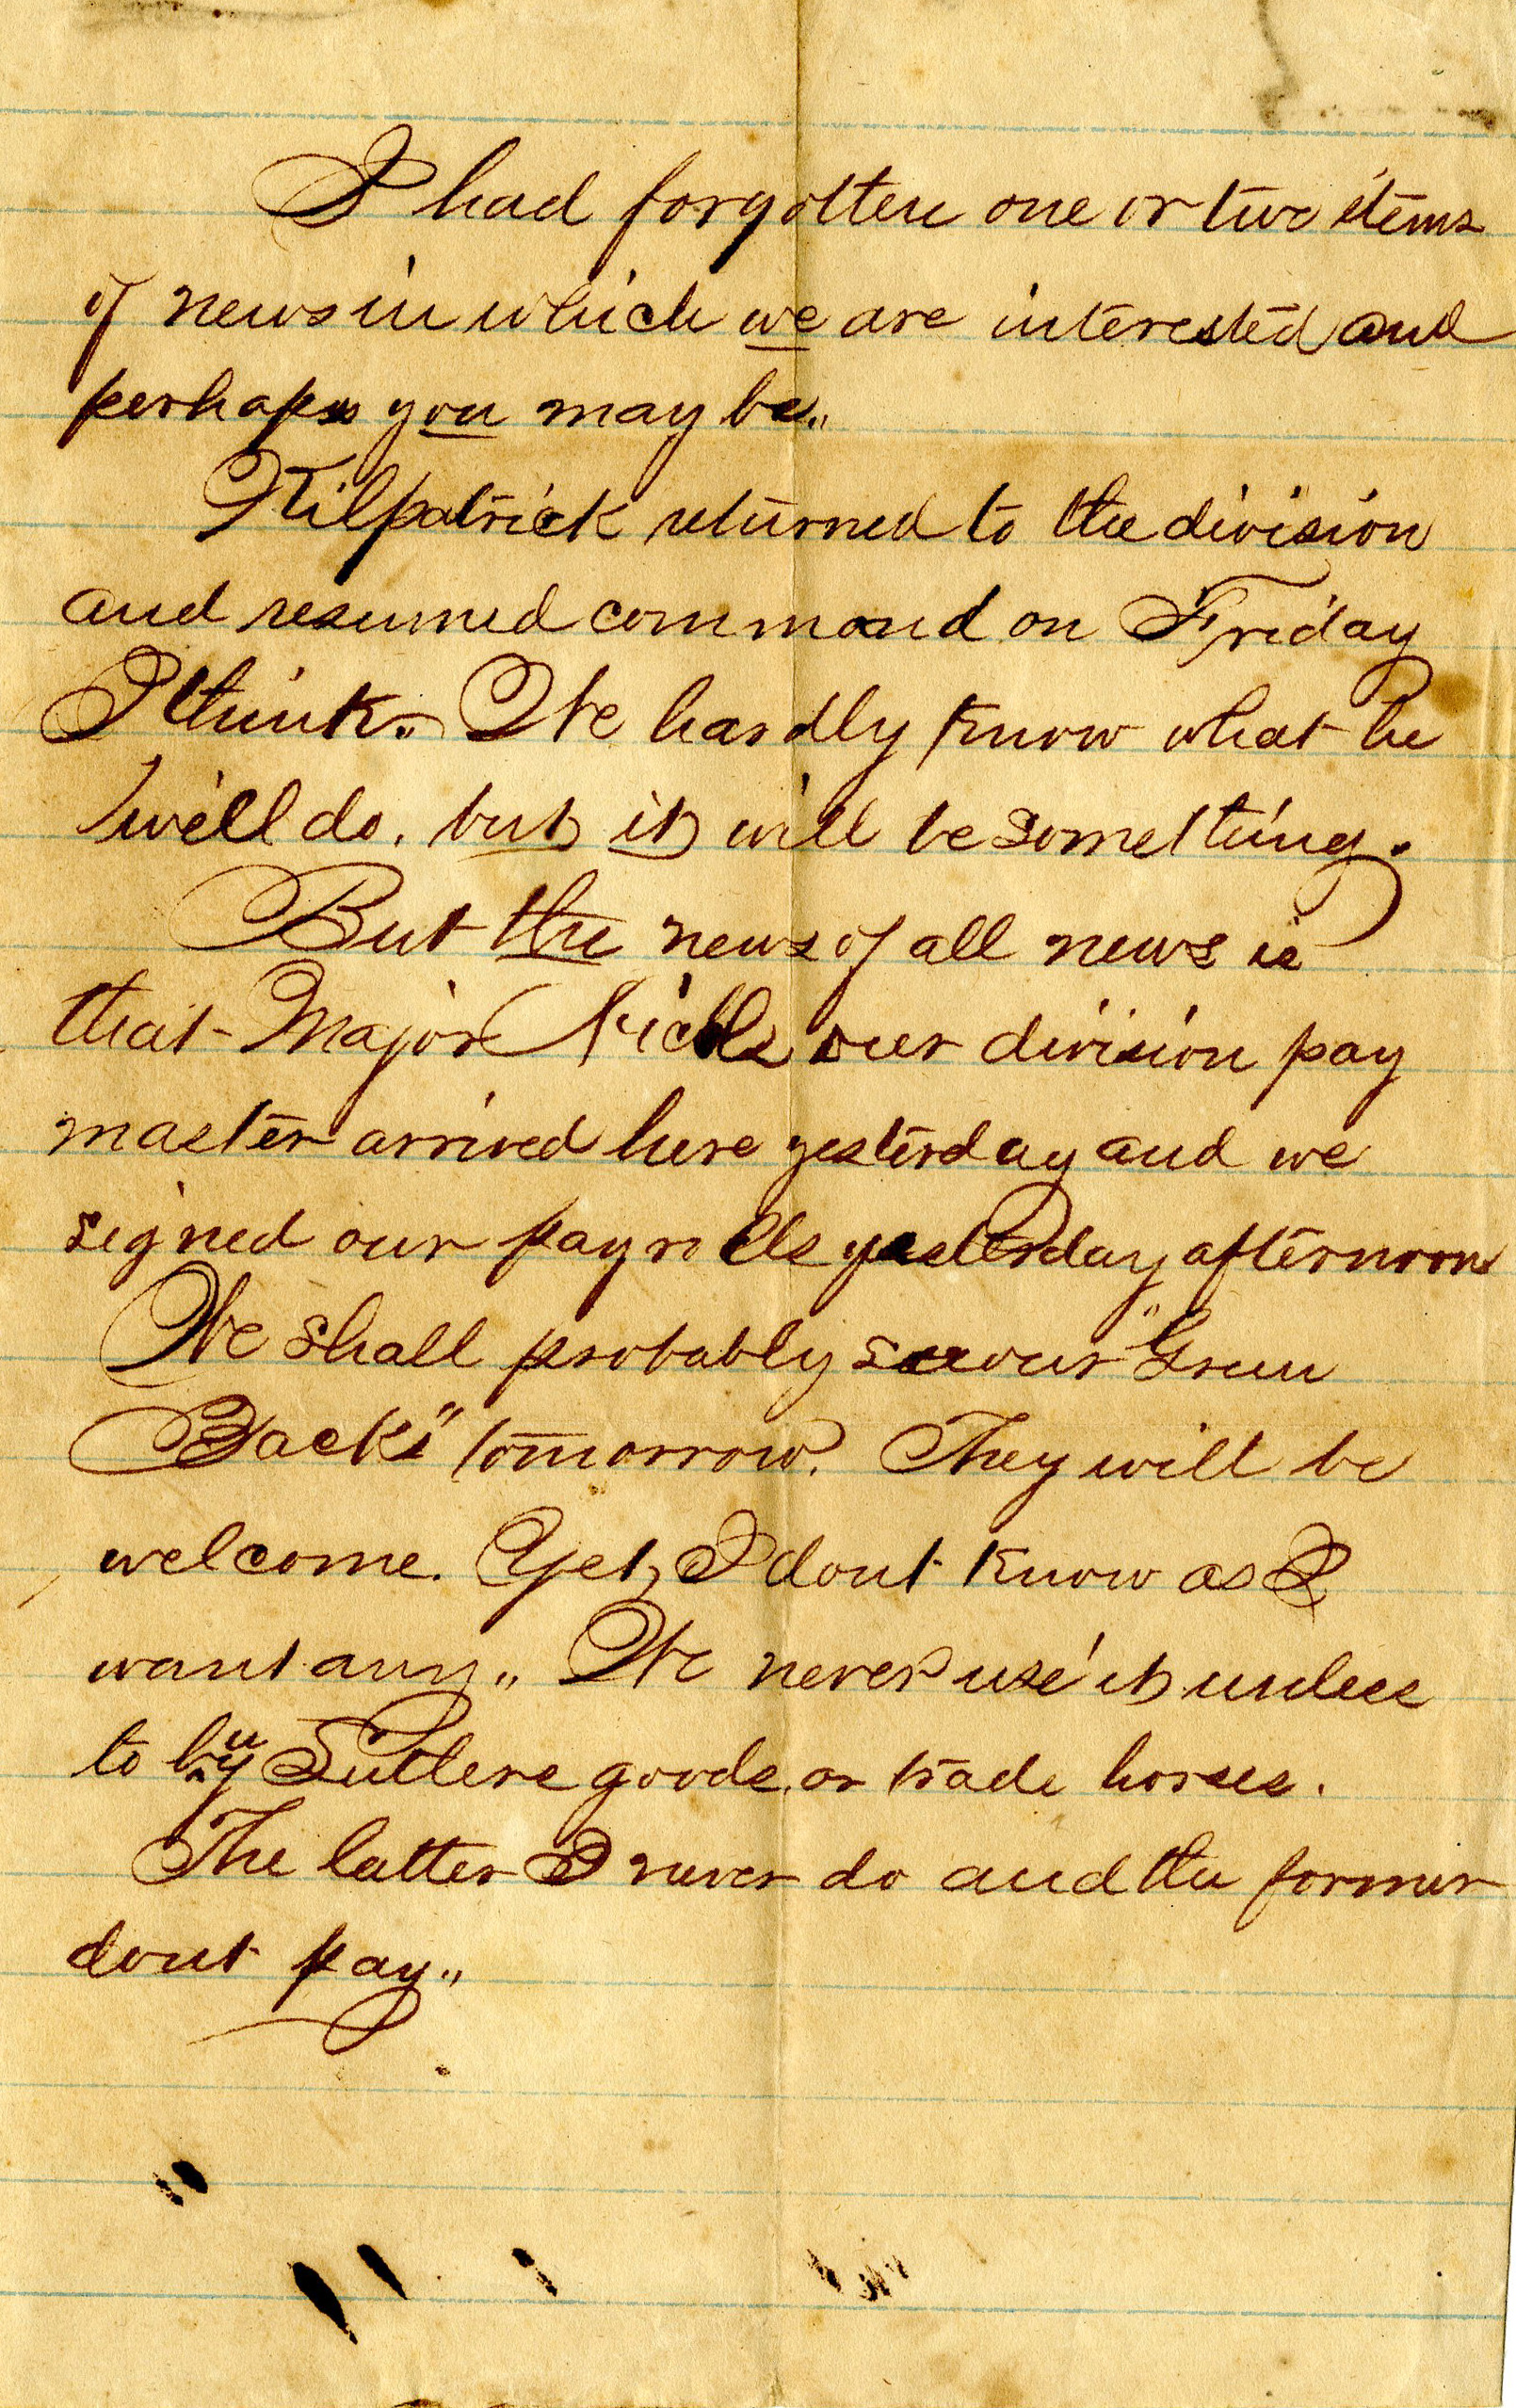 I had forgotten one or two items
of news in which we are interested and
perhaps you may be„
Kilpatrick returned to the division
and resumed command on Friday
I think„ We hardly know what he
will do. but, it, will be something.
But the news of all news is
that Major our division pay
master arrived here yesterday and we
signed our payrolls yesterday afternoon
We shall probably see our "Green
Backs" tomorrow. They will be
welcome. Yet, I dont know as I
want any„ We never use it unless
to buy Sutlers goods, or trade horses.
The latter I never do and the former
dont pay„